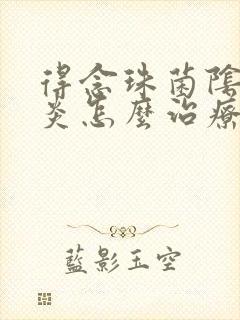 得念珠菌陰
炎怎麼治療
藍影玉空